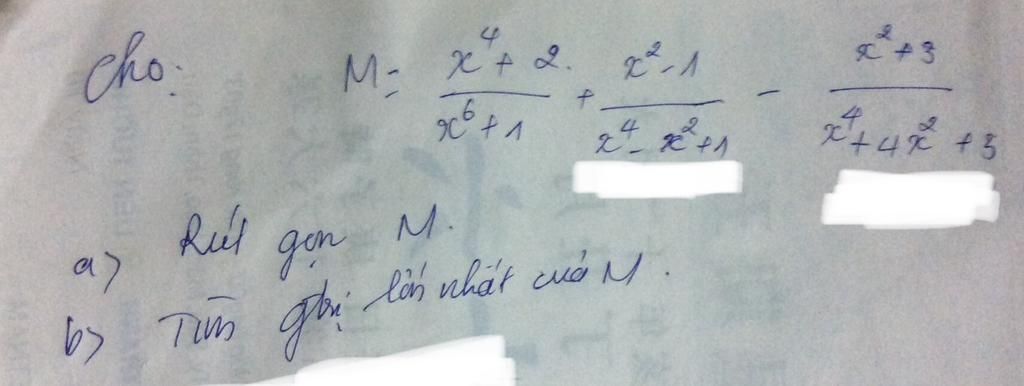 Cho: M = \frac{x^4+2.}{x^6+1} + \frac{x^2-1}{x^4-x^2+1} - \frac{x^2+3}{x^4+4x^2+3}
a) Rút gọn M.
b) Tìm gtrị lớn nhất của M.